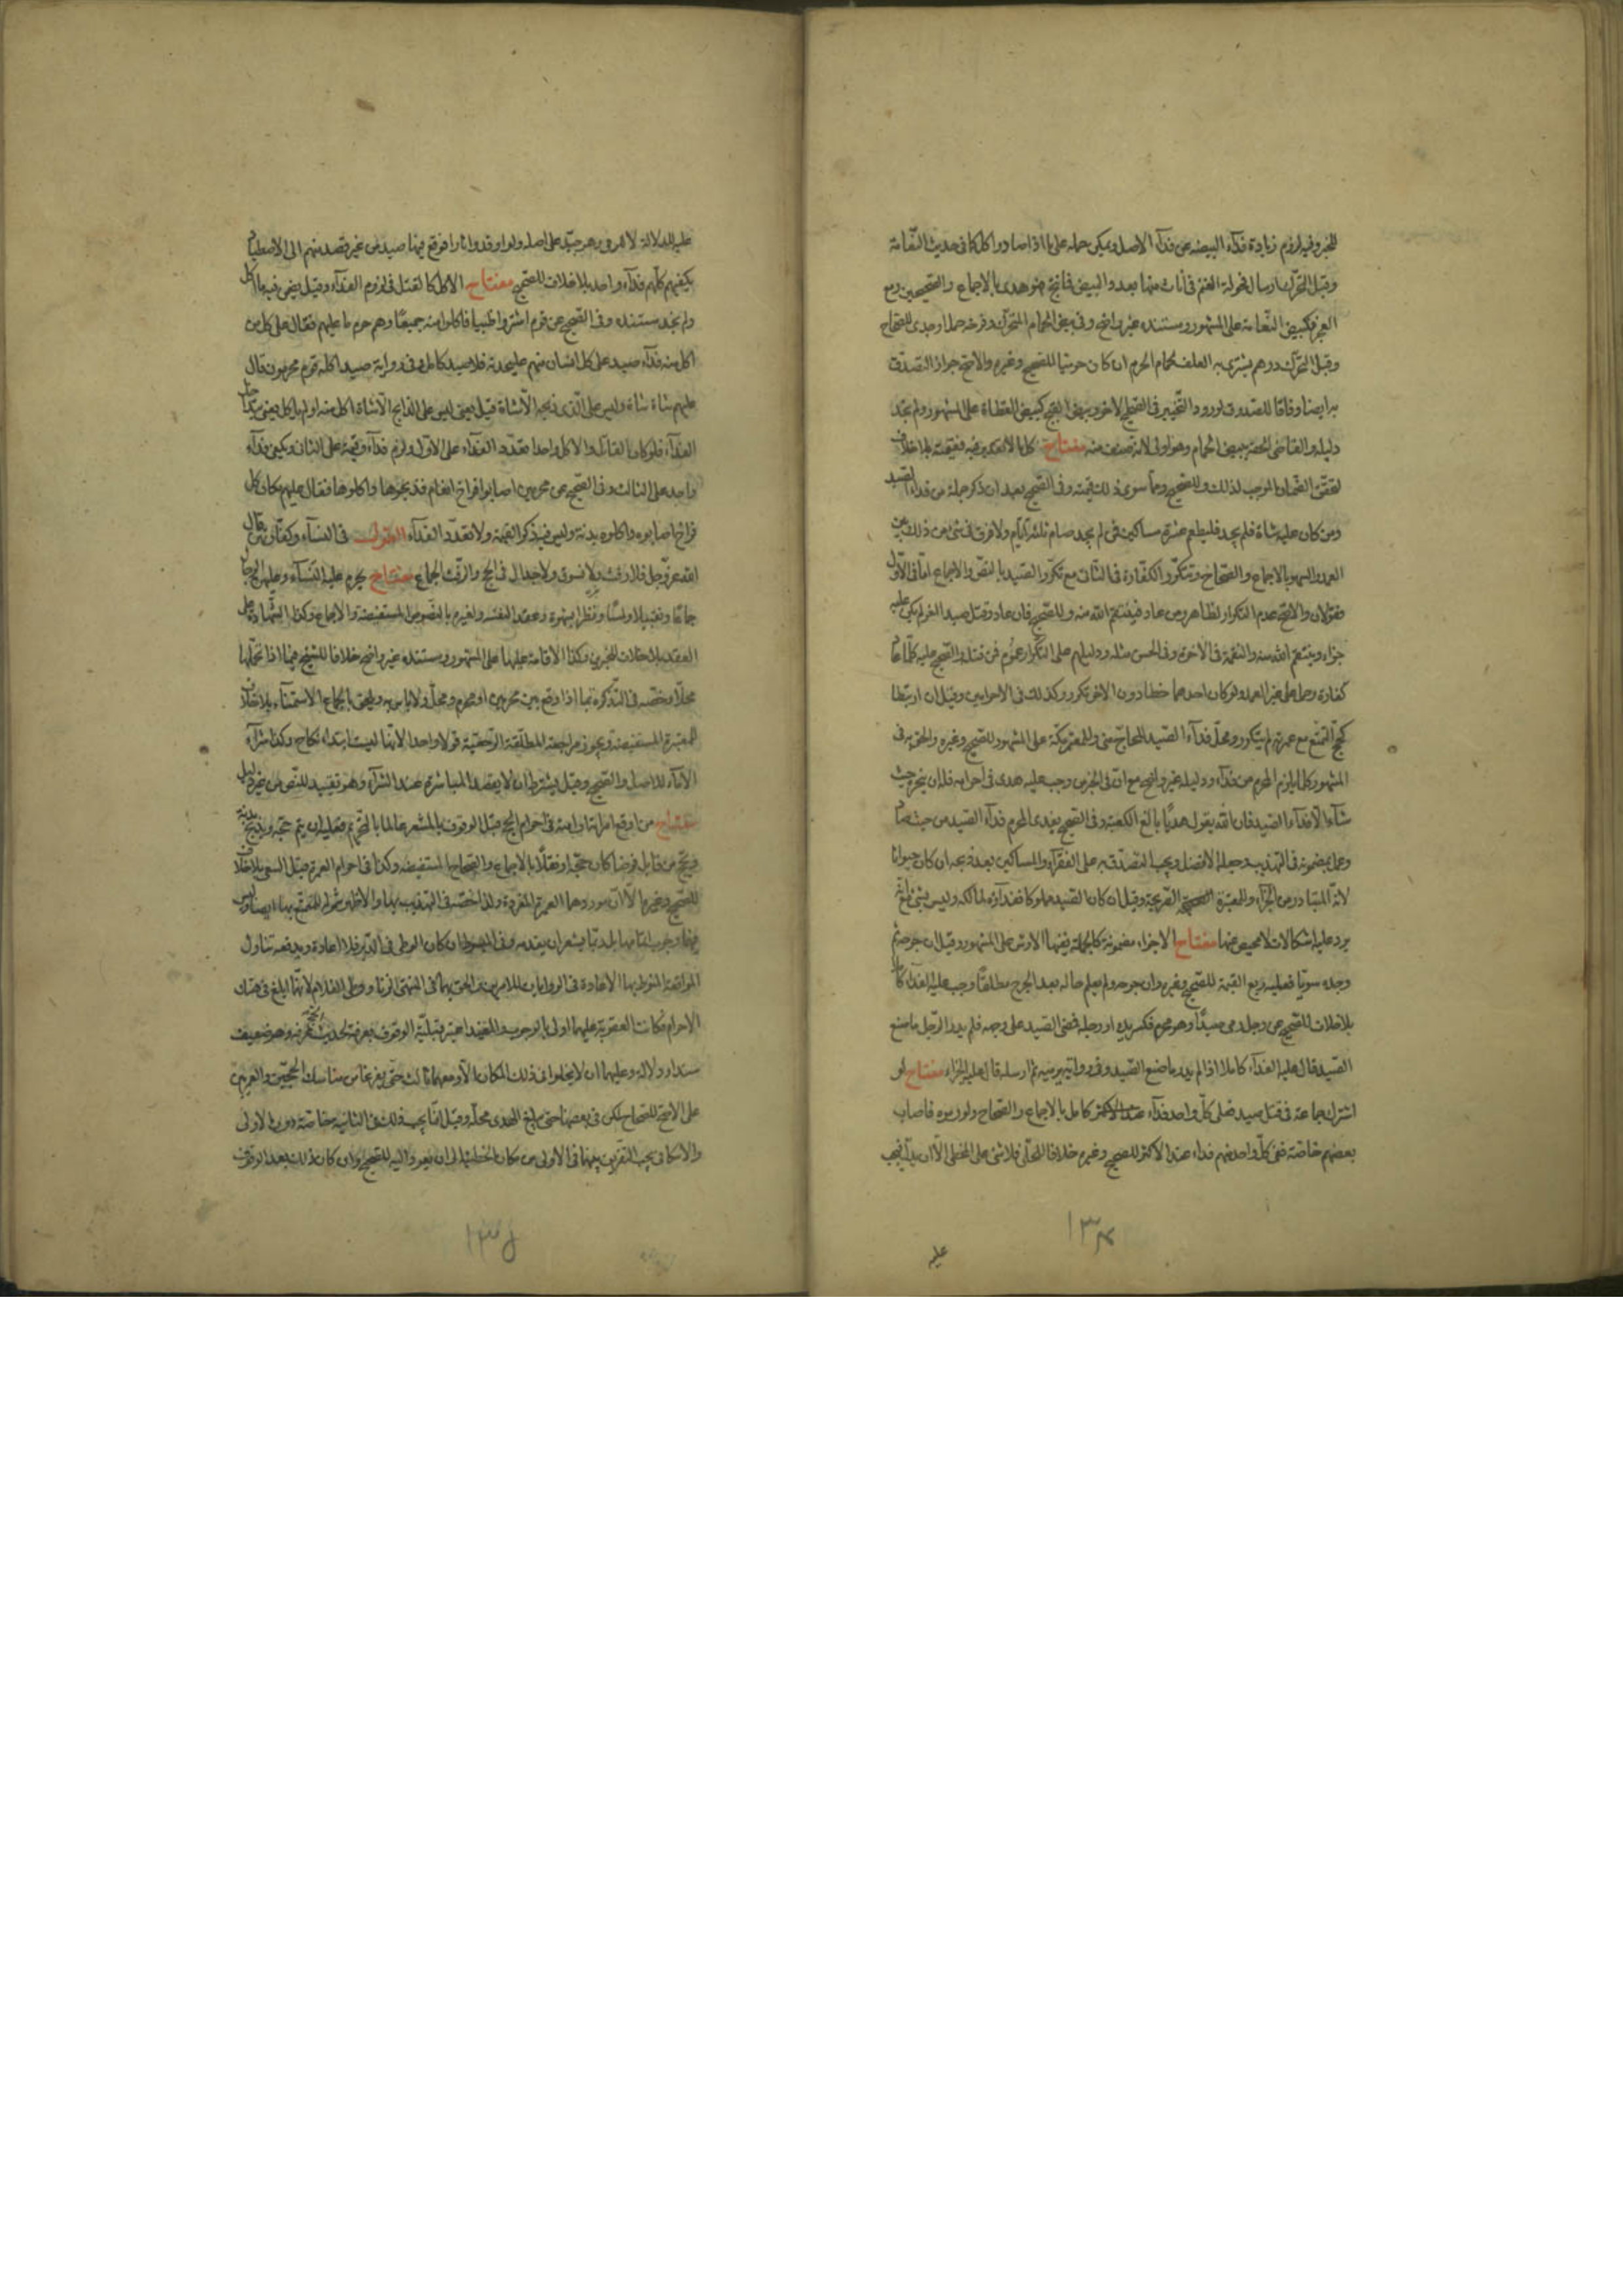 للخبر وفيه لزوم زيادة فداء البيضة عن فداء الاصل ويمكن حمله على ما اذا صاد واكل كما في حديث النعامة
وقبل التحرك ارسال فحولة الغنم في اناث منها بعدد البيض فما نتج فهو هدي بالاجماع والصحيحين ومع
العجز فكبيض النعامة على المشهور ومستنده غير واضح وفي بيض الحمام المتحرك وفرخه حمل او جدي للصحاح
وقبل التحرك درهم يشتري به العلف لحمام الحرم ان كان حرميا للصحيح وغيره والاصح جواز التصدق
به ايضا وفاقا للصدوق لورود التخيير في الصحيح الاخر وبيض القبج كبيض القطاة على المشهور ولم نجد
دليله والقاضي الحقه ببيض الحمام وهو اولى لانه صنف منه مفتاح كل ما لا تقدير فيه ففيه قيمته بلا خلاف
لتحقق الضمان الموجب لذلك وللصحيح وما سوى ذلك قيمته وفي الصحيح بعد ان ذكر جملة من فداء الصيد
ومن كان عليه شاة فلم يجد فليطعم عشرة مساكين فمن لم يجد صام ثلثة ايام ولا فرق في شئ من ذلك بين
العمد والسهو بالاجماع والصحاح وتتكرر الكفارة في الثاني مع تكرر الصيد بالنص والاجماع اما في الاول
فقولان والاصح عدم التكرار لظاهر ومن عاد فينتقم الله منه وللصحيح فان عاد وقتل صيدا اخر لم يكن عليه
جزاء وينتقم الله منه والنقمة في الاخرة وفي الحسن مثله ودليلهم على التكرار عموم فمن قتله والصحيح عليه كلما عاد
كفارة وحملا على غير العمد ولو كان احدهما خطا دون الاخر تكرر وكذلك في الاحرامين وقيل ان ارتبطا
كحج التمتع مع عمرته لم يتكرر ومحل فداء الصيد للحاج منى وللمعتمر مكة على المشهور للصحيح وغيره والحق به في
المشهور كل ما يلزم المحرم من فداء ودليله غير واضح مع ان في الخبر من وجب عليه هدي في احرامه فله ان ينحره حيث
شاء الا فداء الصيد فان الله يقول هديا بالغ الكعبة وفي الصحيح يفدي المحرم فداء الصيد من حيث صاد
وعمل بمضمونه في التهذيب وجعله الافضل ويجب التصدق به على الفقراء والمساكين بعد ذبحه ان كان حيوانا
لانه المتبادر من الجزاء وللمعتبرة الصريحة وقيل ان كان الصيد مملوكا ففداؤه لمالكه وليس بشئ فانه
يرد عليه اشكالات لا محيص عنها مفتاح الاجزاء مضمونة كالجملة ففيها الارش على المشهور وقيل ان جرحه ثم
وجده سويا فعليه ربع القيمة للصحيح وغيره وان جرحه ولم يعلم حاله بعد الجرح مطلقا وجب عليه الفداء كاملا
بلا خلاف للصحيح عن رجل رمى صيدا وهو محرم فكسر يده او رجله فمضى الصيد على وجهه فلم يدر الرجل ما صنع
الصيد قال عليه الفداء كاملا اذا لم يدر ما صنع الصيد وفي رواتيه ثم ارسله قال عليه الجزاء مفتاح لو
اشترك جماعة في قتل صيد فعلى كل واحد فداء كامل بالاجماع والصحاح ولو رموه فاصاب
بعضهم خاصة فعلى كل واحد منهم فداء عند الاكثر للصحيح وغيره خلافا للحلي فلا شئ على المخطي الا ان يدل فيجب
عليه
١٣٤
عليه للدلالة لا للرمي وهو جيد على اصله ولو اوقدوا نارا فوقع فيها صيد من غير قصد منهم الى الاصطياد
يكفيهم كلهم فداء واحد بلا خلاف للصحيح مفتاح الاكل كالقتل في لزوم الفداء وقيل يضمن قيمة ما اكل
ولم نجد مستنده وفي الصحيح عن قوم اشتروا ظبيا فاكلوا منه جميعا وهم حرم ما عليهم فقال على كل من
اكل منه فداء صيد على كل انسان منهم على حدته فداء صيد كاملا وفي رواية صيد اكله قوم محرمون قال
عليهم شاة شاة وليس على الذي ذبحه الا شاة قيل يعني ليس على الذابح الا شاة اكل منه او لم ياكل يعني
الفداء فلو كان القاتل والاكل واحدا تعدد الفداء على الاول ولزم فداء وقيمة على الثاني ويكفي فداء
واحد على الثالث وفي الصحيح عن محرمين اصابوا فراخ نعام فذبحوها واكلوها فقال عليهم مكان كل
فرخ اصابوه واكلوه بدنة وليس فيه ذكر القيمة ولا تعدد الفداء القول في النساء وكفارتهن قال
الله عز وجل فلا رفث ولا فسوق ولا جدال في الحج والرفث الجماع مفتاح يحرم عليه النساء وعليهن الرجال
جماعا وتقبيلا ولمسا ونظرا بشهوة وعقدا لنفسه ولغيره بالنصوص المستفيضة والاجماع وكذا الشهادة على
العقد بلا خلاف للخبرين وكذا الاقامة عليهما على المشهور ومستنده غير واضح خلافا للشيخ فيما اذا تحملها
محلا وخصه في التذكرة بما اذا وقع بين محرمين او محرم ومحل ولا باس به ويلحق بالجماع الاستمناء بلا خلاف
للمعتبرة المستفيضة ويجوز مراجعة المطلقة الرجعية قولا واحدا لانها ليست ابتداء نكاح وكذا شراء
الاماء للاصل والصحيح وقيل يشترط ان لا يقصد المباشرة عند الشراء وهو تقييد للنص من غير دليل
مفتاح من اوقع امراته او امته في احرام الحج قبل الوقوف بالمشعر عالما بالتحريم فعليه ان يتم حجه ويذبح بدنة
ويحج من قابل فرضا كان حجه او نفلا بالاجماع والصحاح المستفيضة وكذا في احرام العمرة قبل السعي بلا خلاف
للصحيح وغيره الا ان موردهما العمرة المفردة ولذا خصه في التهذيب بها والاظهر شموله للمتمتع بها ايضا وليس
فيها وجوب اتمامها بل ربما يشعران بعدمه وفي المبسوط ان كان الوطي في الدبر فلا اعادة ويدفعه تناول
المواقعة المنوط بها الاعادة في الروايات للامرين والحق بهما في المنتهى الزنا ووطي الغلام لانها ابلغ في هتك
الاحرام فكانت العقوبة عليهما اولى بالوجوب والمفيد اعتبر قبلية الوقوف بعرفة لحديث الحج عرفة وهو ضعيف
سندا ودلالة وعليهما ان لا يخلوا في ذلك المكان الا ومعهما ثالث حتى يفرغا من مناسك الحجين والعمرتين
على الاصح للصحاح لكن في بعضها حتى يبلغ الهدي محله وقيل انما يجب ذلك في الثانية خاصة دون الاولى
والاسكافي يجب التفريق بينهما في الاولى من مكان الخطيئة الى ان يعودا اليه للصحيح وان كان ذلك بعد الوقوف